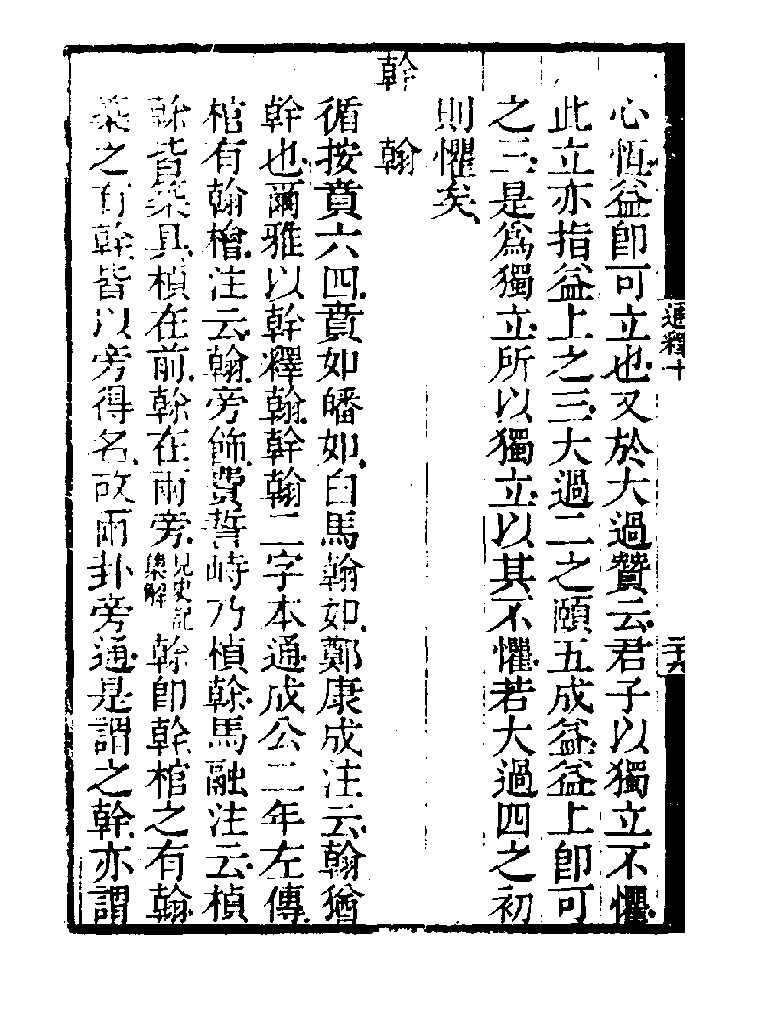 心恆益卽可立也又於大過贊云君子以獨立不懼
此立亦指益上之三大過二之頤五成益益上卽可
之三是爲獨立所以獨立以其不懼若大過四之初
則懼矣
幹　翰
循按賁六四賁如皤如白馬翰如鄭康成注云翰猶
幹也爾雅以幹釋翰幹翰二字本通成公二年左傳
棺有翰檜注云翰旁飾費誓峙乃楨榦馬融注云楨
榦皆築具楨在前榦在兩旁見史記集解榦卽幹棺之有翰
築之有幹皆以旁得名故兩卦旁通是謂之幹亦謂
通釋十
二十八